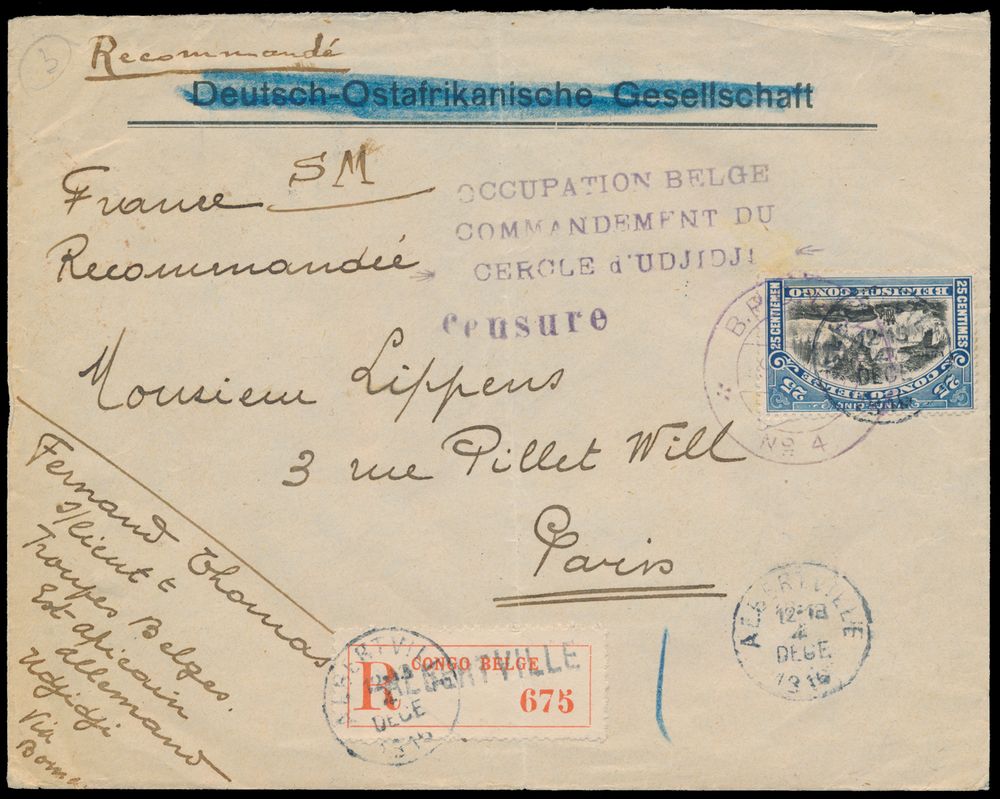 3
Recommandé
Deutsch-Ostafrikanische Gesellschaft
SM
France
Recommandée
OCCUPATION BELGE
COMMANDEMENT DU
CERCLE d'UDJIDJI
censure
Monsieur Lippens
3 rue Pillet Will
Paris
25 CENTIEMEN
BELGISCH CONGO
25 CENTIMES
CONGO BELGE
25
25
12-18
DECE
B.P.
No 4
Fernand Thomas
s/lieut t
Troupes Belges.
Est africain
allemand
Udjidji
Via
Boma
ALBERTVILLE
12-18
4
DECE
1916
R
CONGO BELGE
ALBERTVILLE
675
ALBERTVILLE
4
DECE
1916